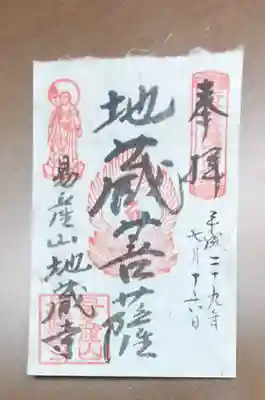 奉拝
平成二十九年
七月十六日
地蔵菩薩
易産山地蔵寺